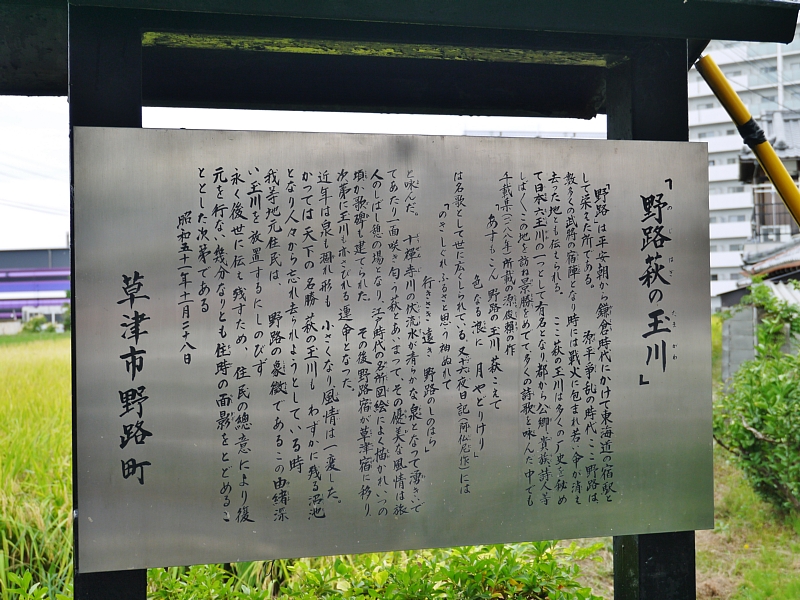 「野路萩の玉川」
のじはぎ たまかわ
「野路」は平安朝から鎌倉時代にかけて東海道の宿駅と
して栄えた所である。 源平争乱の時代 ここ野路は
数多くの武将の宿陣となり 時には戦火に包まれ若い命が消え
去った地とも伝えられる。 ここ萩の玉川は多くの歴史を秘め
て日本六玉川の一つとして有名となり都から公卿 貴族 詩人等
しばしばこの地を訪ね景勝をめでて多くの詩歌を詠んだ 中でも
千載集(一一八八年)所載の源俊頼の作
あすもこん 野路の玉川 萩こえて
色なる浪に 月やどりけり」
は名歌として世に広くしられている。又十六夜日記(阿仏尼作)には
「のきしぐれ ふるさと思う 袖ぬれて
行きさき遠き 野路のしのはら」
と詠んだ。 十禅寺川の伏流水が清らかな泉となって湧きいで
てあたり一面咲き匂う萩とあいまって、その優美な風情は旅
人のしばし憩の場となり、江戸時代の名所図絵によく描かれいつの
頃か歌碑も建てられた。 その後野路宿が草津宿に移り、
次第に玉川もさびれる運命となった。
近年は泉も涸れ形も 小さくなり風情は一変した。
かつては天下の名勝 萩の玉川も わずかに残る沼池
となり人々から忘れ去られようとしている時
我等地元住民は 野路の象徴であるこの由緒深
い玉川を放置するにしのびず
永く後世に伝え残すため、住民の総意により復
元を行ない幾分なりとも往時の面影をとどめるこ
ととした次第である
昭和五十一年十一月二十八日
草津市野路町